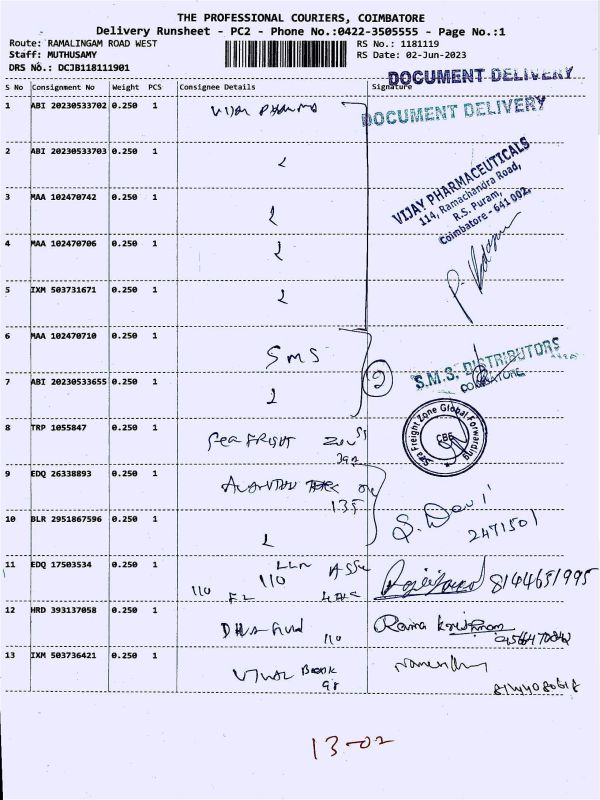 THE PROFESSIONAL COURIERS, COIMBATORE
Delivery Runsheet - PC2 - Phone No.:0422-3505555 - Page No.:1
Route: RAMALINGAM ROAD WEST RS No.: 1181119
Staff: MUTHUSAMY RS Date: 02-Jun-2023
DRS No.: DCJB118111901
DOCUMENT DELIVERY
S No Consignment No Weight PCS Consignee Details Signature
1 ABI 20230533702 0.250 1
DOCUMENT DELIVERY
2 ABI 20230533703 0.250 1
VIJAY PHARMACEUTICALS
114, Ramachandra Road,
R.S. Puram,
Coimbatore - 641 002.
3 MAA 102470742 0.250 1
4 MAA 102470706 0.250 1
5 IXM 503731671 0.250 1
6 MAA 102470710 0.250 1 SMS
S.M.S. DISTRIBUTORS
COIMBATORE
7 ABI 20230533655 0.250 1 2
8 TRP 1055847 0.250 1
Sea Freight Zone Global Forwarding
CBE
9 EDQ 26338893 0.250 1
135
S. Devi
10 BLR 2951867596 0.250 1 2471501
11 EDQ 17503534 0.250 1 110 110 8144651995
12 HRD 393137058 0.250 1 110 Rama Krishnan
13 IXM 503736421 0.250 1 Book
98
13-02